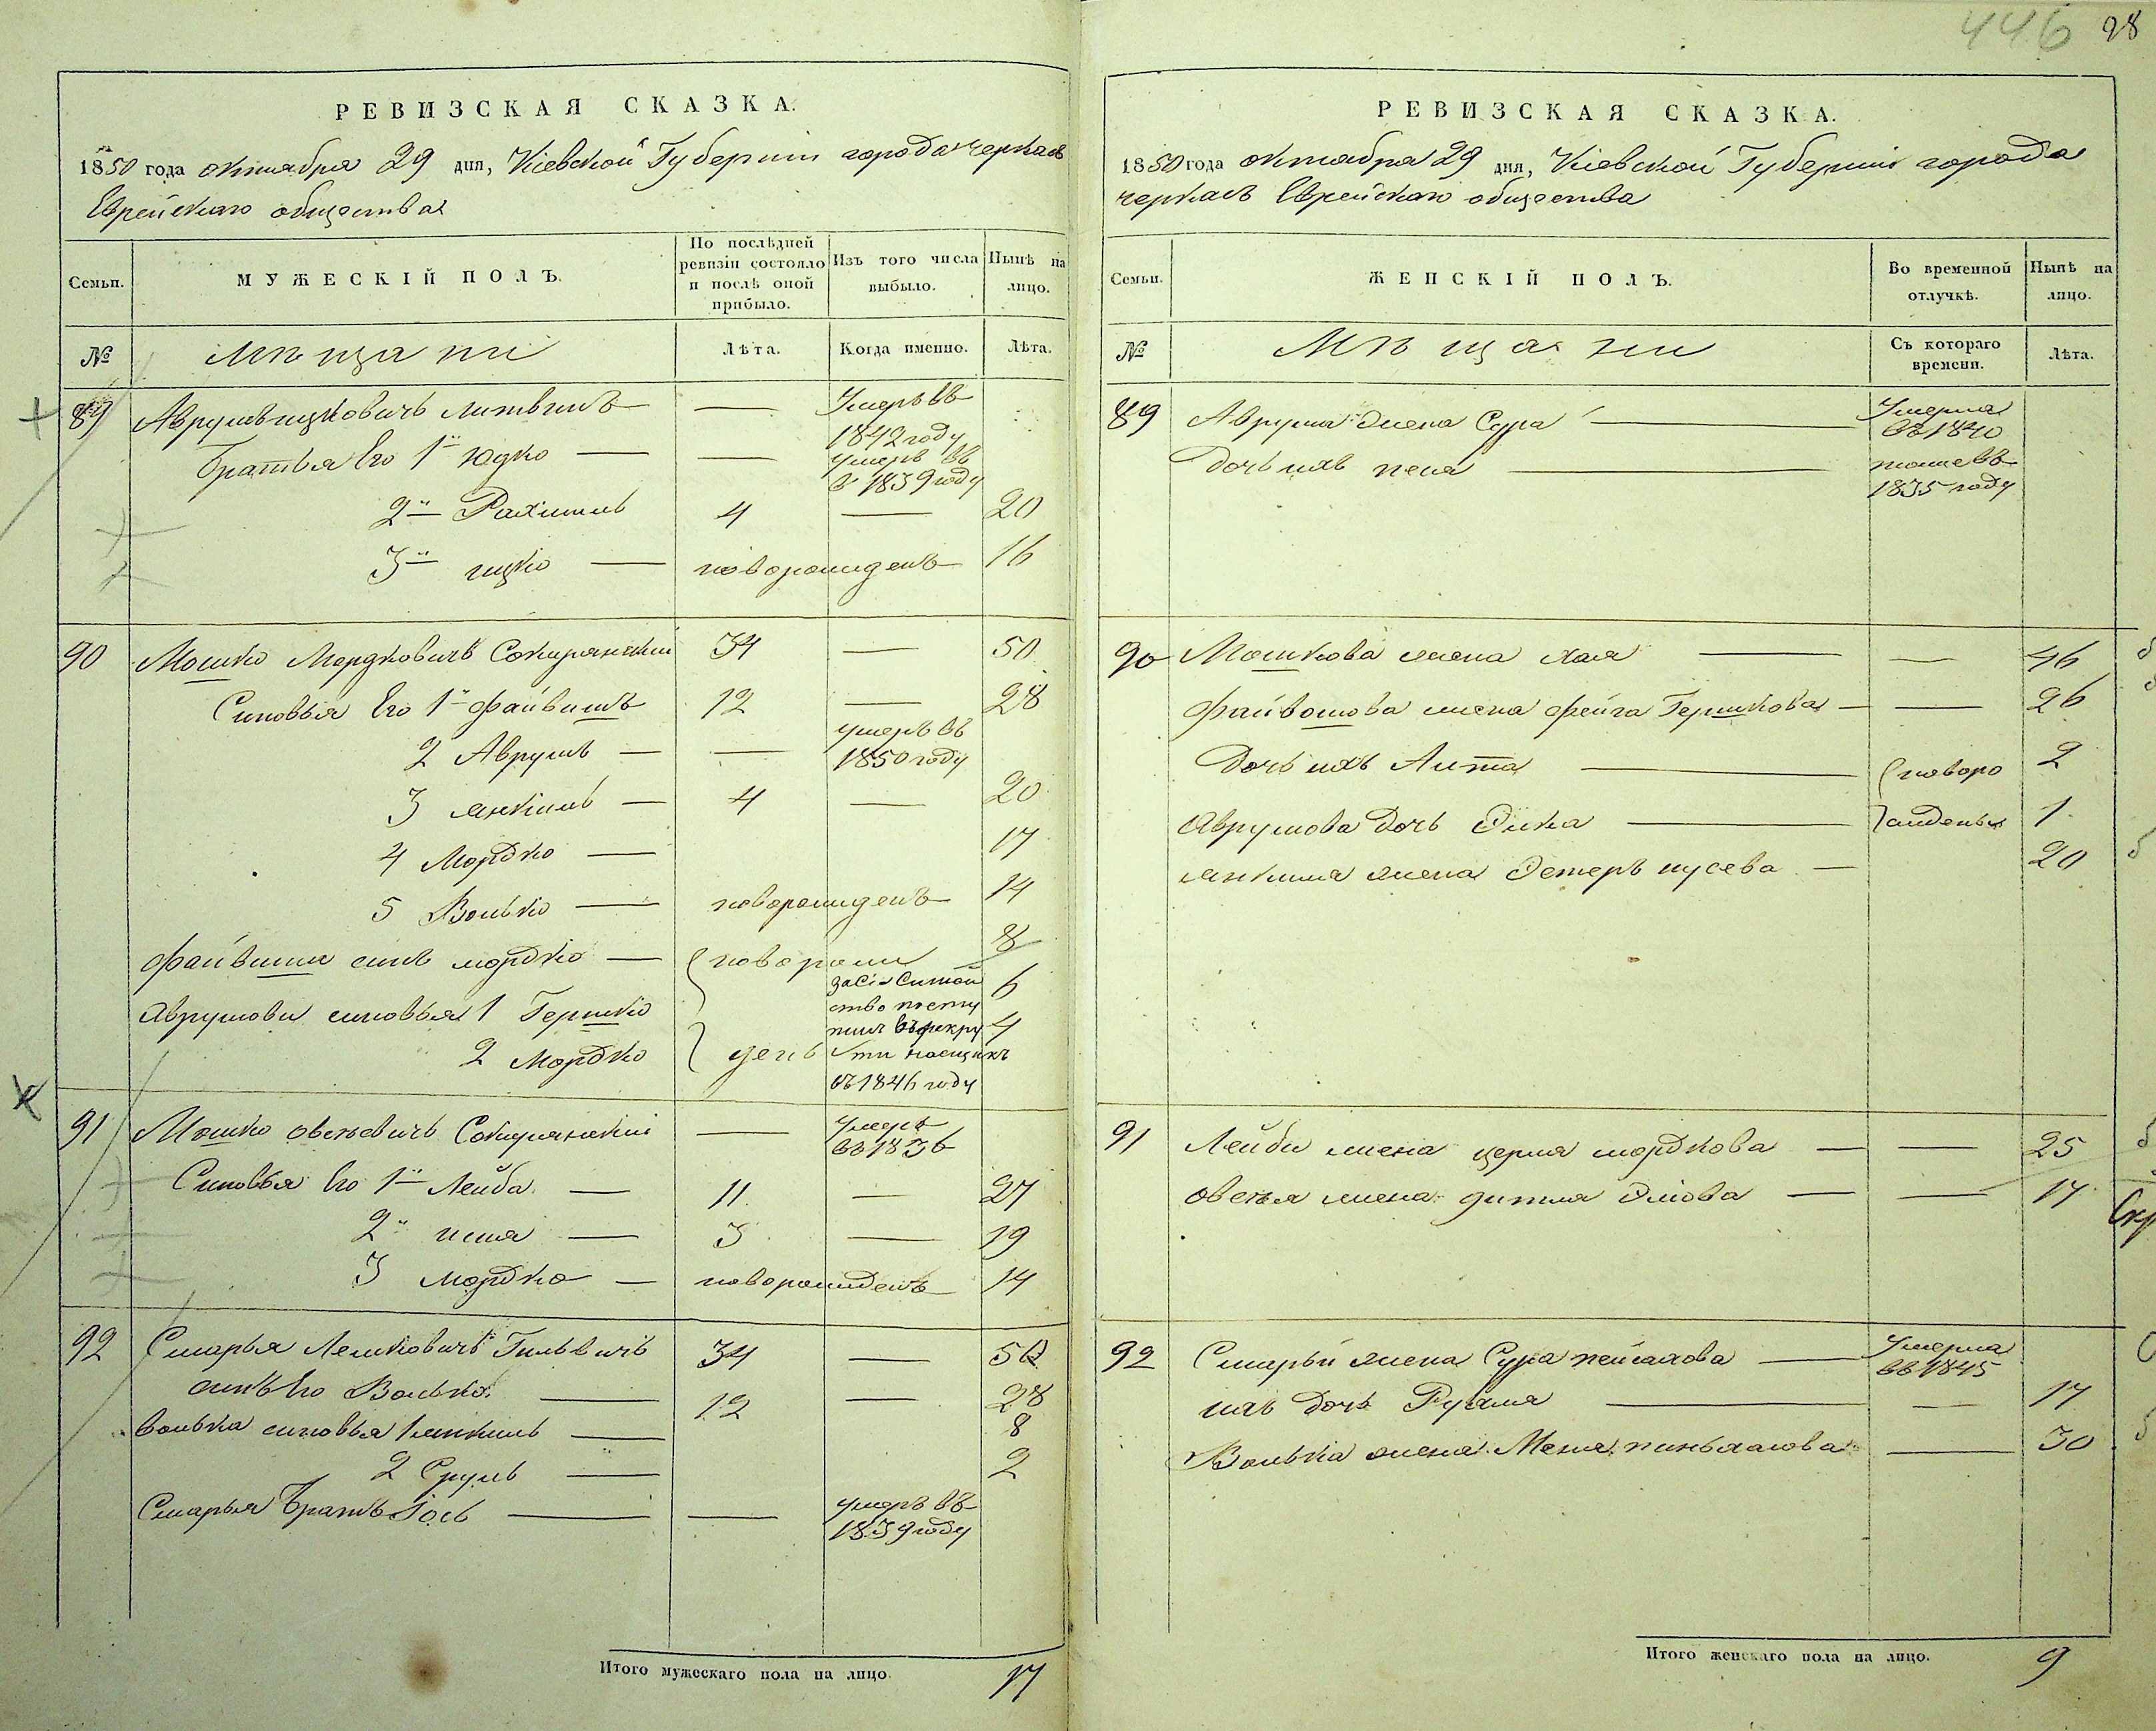 446 28
РЕВИЗСКАЯ СКАЗКА.
1850 года октября 29 дня, Кіевской Губерніи города черкасъ
Еврейскаго общества
Семьи.
МУЖЕСКІЙ ПОЛЪ.
По послѣдней ревизіи состояло и послѣ оной прибыло.
Изъ того числа выбыло.
Нынѣ на лицо.
№
Мѣщани
Лѣта.
Когда именно.
Лѣта.
89 Аврумъ ицковичъ литвинъ — Умеръ въ 1842 году
Братья Его 1й Юдко — — умеръ въ в 1839 году
2й Рахмиль 4 — 20
3й ицко — новорожденъ 16
90 Мошко Мордковичъ Сокирянскій 34 — 50
Сыновья Его 1й файвишъ 12 — 28
2 Аврумъ — — умеръ въ 1850 году
3 янкимъ — 4 — 20
4 Мордко — 17
5 Волько — новорожденъ 14
файвиша сынъ мордко — новорож 8
Аврумови сыновья 1 Гершко 6
2 Мордко денъ 4
въ 1846 году
91 Мошко овсѣевичъ Сокирянскій — умеръ въ 1836
Сыновья Его 1й Лейба — 11 — 27
2й — 3 — 19
3 мордко — новорожденъ 14
92 Смарья Лешковичъ 34 —
сынъ Его Волько — 12 — 28
Волька сыновья 1 янкиль — 8
2 Сруль — 2
Смарья Братъ Іось — — умеръ въ 1839 году
Итого мужескаго пола на лицо. 17
РЕВИЗСКАЯ СКАЗКА.
1850 года октября 29 дня, Кіевской Губерніи города
черкасъ Еврейскаго общества
Семьи.
ЖЕНСКІЙ ПОЛЪ.
Во временной отлучкѣ.
Нынѣ на лицо.
№
Мѣщани
Съ котораго времени.
Лѣта.
89 Аврума жена Сура — Умерла въ 1840
Дочь ихъ песя — тоже въ 1835 году
90 Мошкова жена хая — — 46
файвошова жена фейга Гершкова — — 26
Дочь ихъ — новоро 2
Аврумова Дочь — жденья 1
янкиля жена Эстеръ нусева — 20
91 Лейби жена церля мордкова — — 25
овсѣя жена — — 17
92 Смарьи жена Сура пейсахова — Умерла въ 1845
ихъ Дочь Рухля — — 17
Волька жена Меня — 30
Итого женскаго пола на лицо. 9